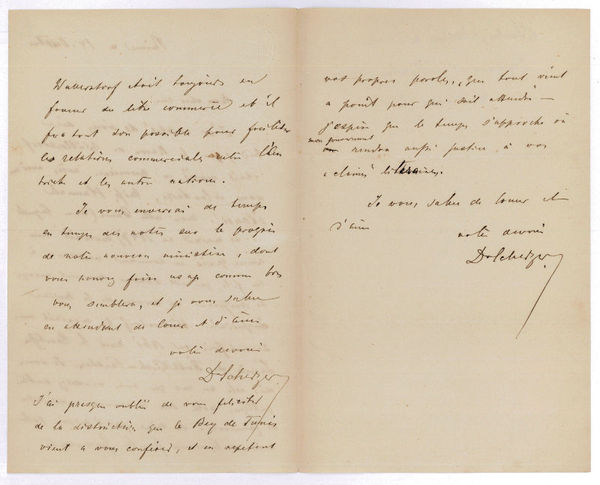 Wullerstorf était toujours en
faveur du libre commerce et il
fera tout son possible pour faciliter
les relations commerciales entre l'Au
triche et les autres nations.
Je vous enverrai de temps
en temps des notes sur le progrès
de notre nouveau ministère, dont
vous pouvez faire usage comme bon
vous semblera, et je vous salue
en attendant de coeur et d'âme
votre devoué
Dr Scherzer.
J'ai presque oublié de vous feliciter
de la distinction que le Bey de Tunis
vient a vous conférer, et en repétant
vos propres paroles, "que tout vient
a point pour qui sait attendre" –
j'espère que le temps s'approche où
mon gouvernement
rendra aussi justice à vos
literaires.
Je vous salue de coeur et
d'âme
votre devoué
Dr Scherzer.